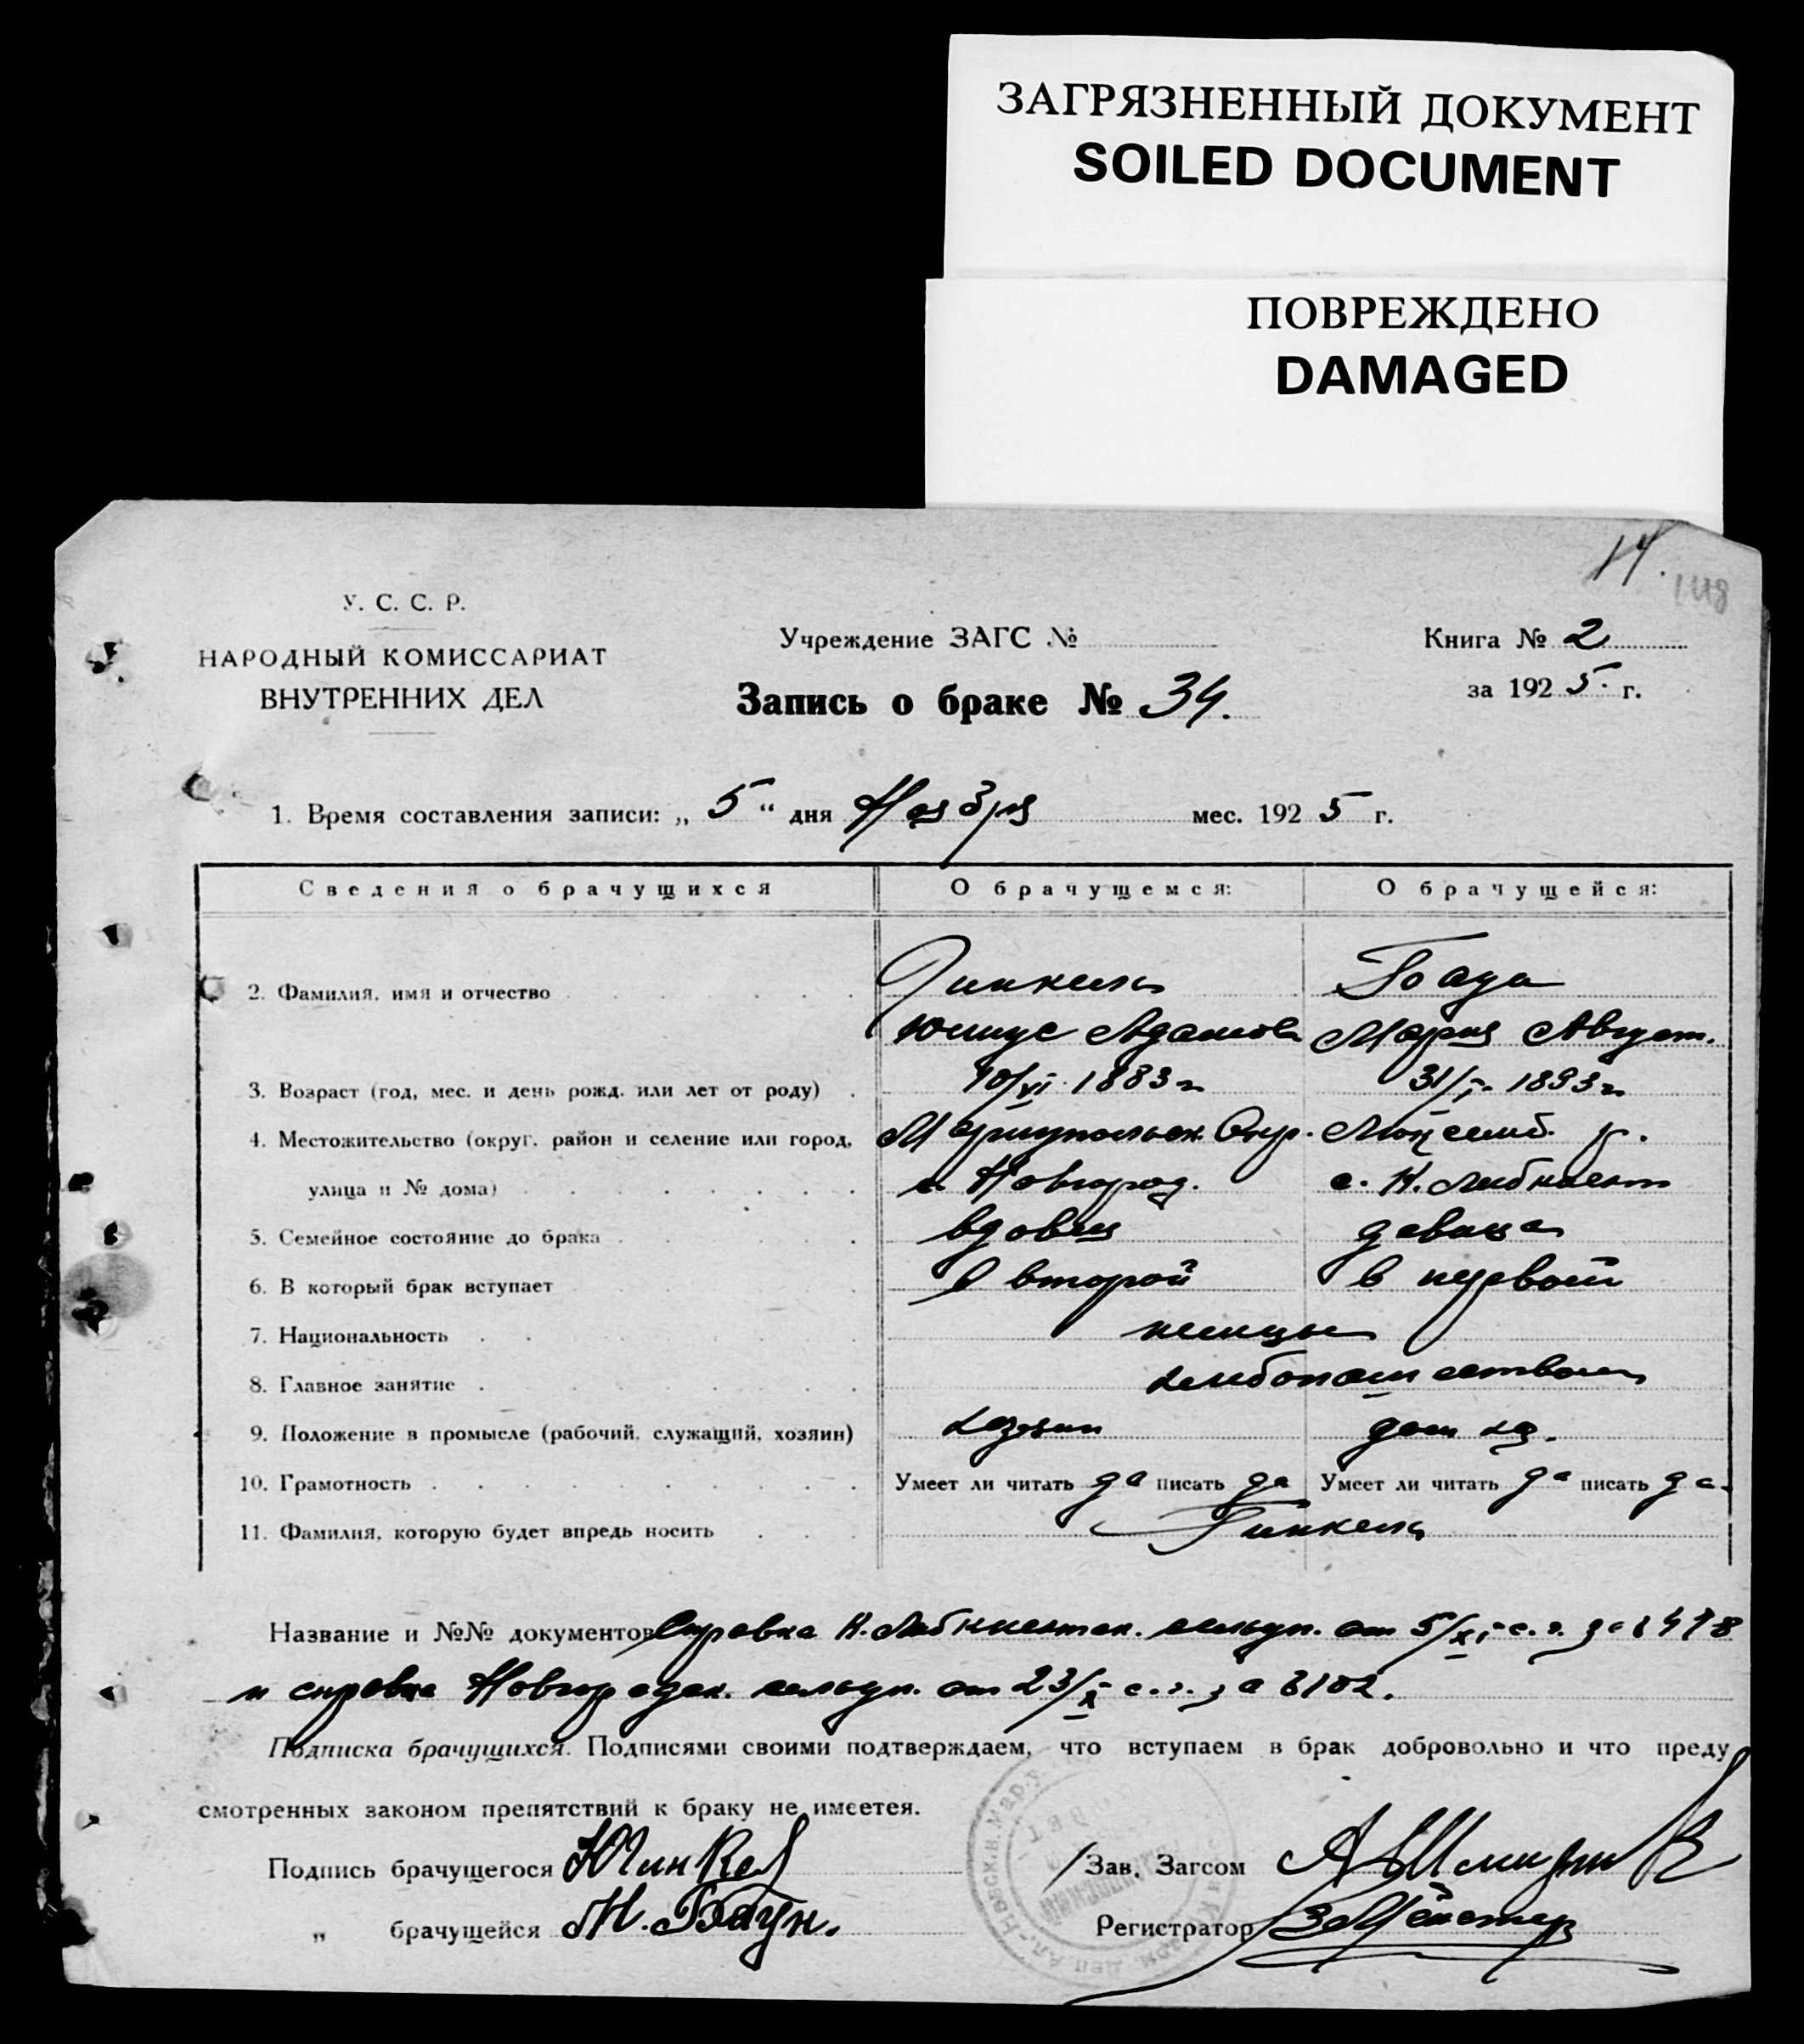 ЗАГРЯЗНЕННЫЙ ДОКУМЕНТ
SOILED DOCUMENT
ПОВРЕЖДЕНО
DAMAGED
14.
148
У. С. С. Р.
НАРОДНЫЙ КОМИССАРИАТ
ВНУТРЕННИХ ДЕЛ
Учреждение ЗАГС №
Запись о браке № 34.
Книга № 2
за 1925 г.
1. Время составления записи: „5“ дня Ноября мес. 1925 г.
Сведения о брачущихся О брачущемся: О брачущейся:
2. Фамилия, имя и отчество Гинкель
Юлиус Адамов. Мария Август.
3. Возраст (год, мес. и день рожд. или лет от роду) 10/VI 1883 г 31/I. 1893 г
4. Местожительство (округ, район и селение или город, Мариупольск. Окр. Люксемб. р.
улица и № дома) с. Новгород. с. К. Либкнехт
5. Семейное состояние до брака вдовец девица
6. В который брак вступает в второй в первый
7. Национальность немцы
8. Главное занятие хлебопашеством
9. Положение в промысле (рабочий, служащий, хозяин) хозяин дом хоз.
10. Грамотность Умеет ли читать да писать да Умеет ли читать да писать да.
11. Фамилия, которую будет впредь носить Гинкель
Название и №№ документов Справка К. Либкнехтск. сельуп. от 5/XI с. г. за
и справка Новгородск. сельуп. от 23/X с. г. за
Подписка брачущихся. Подписями своими подтверждаем, что вступаем в брак добровольно и что преду
смотренных законом препятствий к браку не имеется.
Подпись брачущегося Ю Гинкел
„ брачущейся М. Баун.
Зав. Загсом
Регистратор